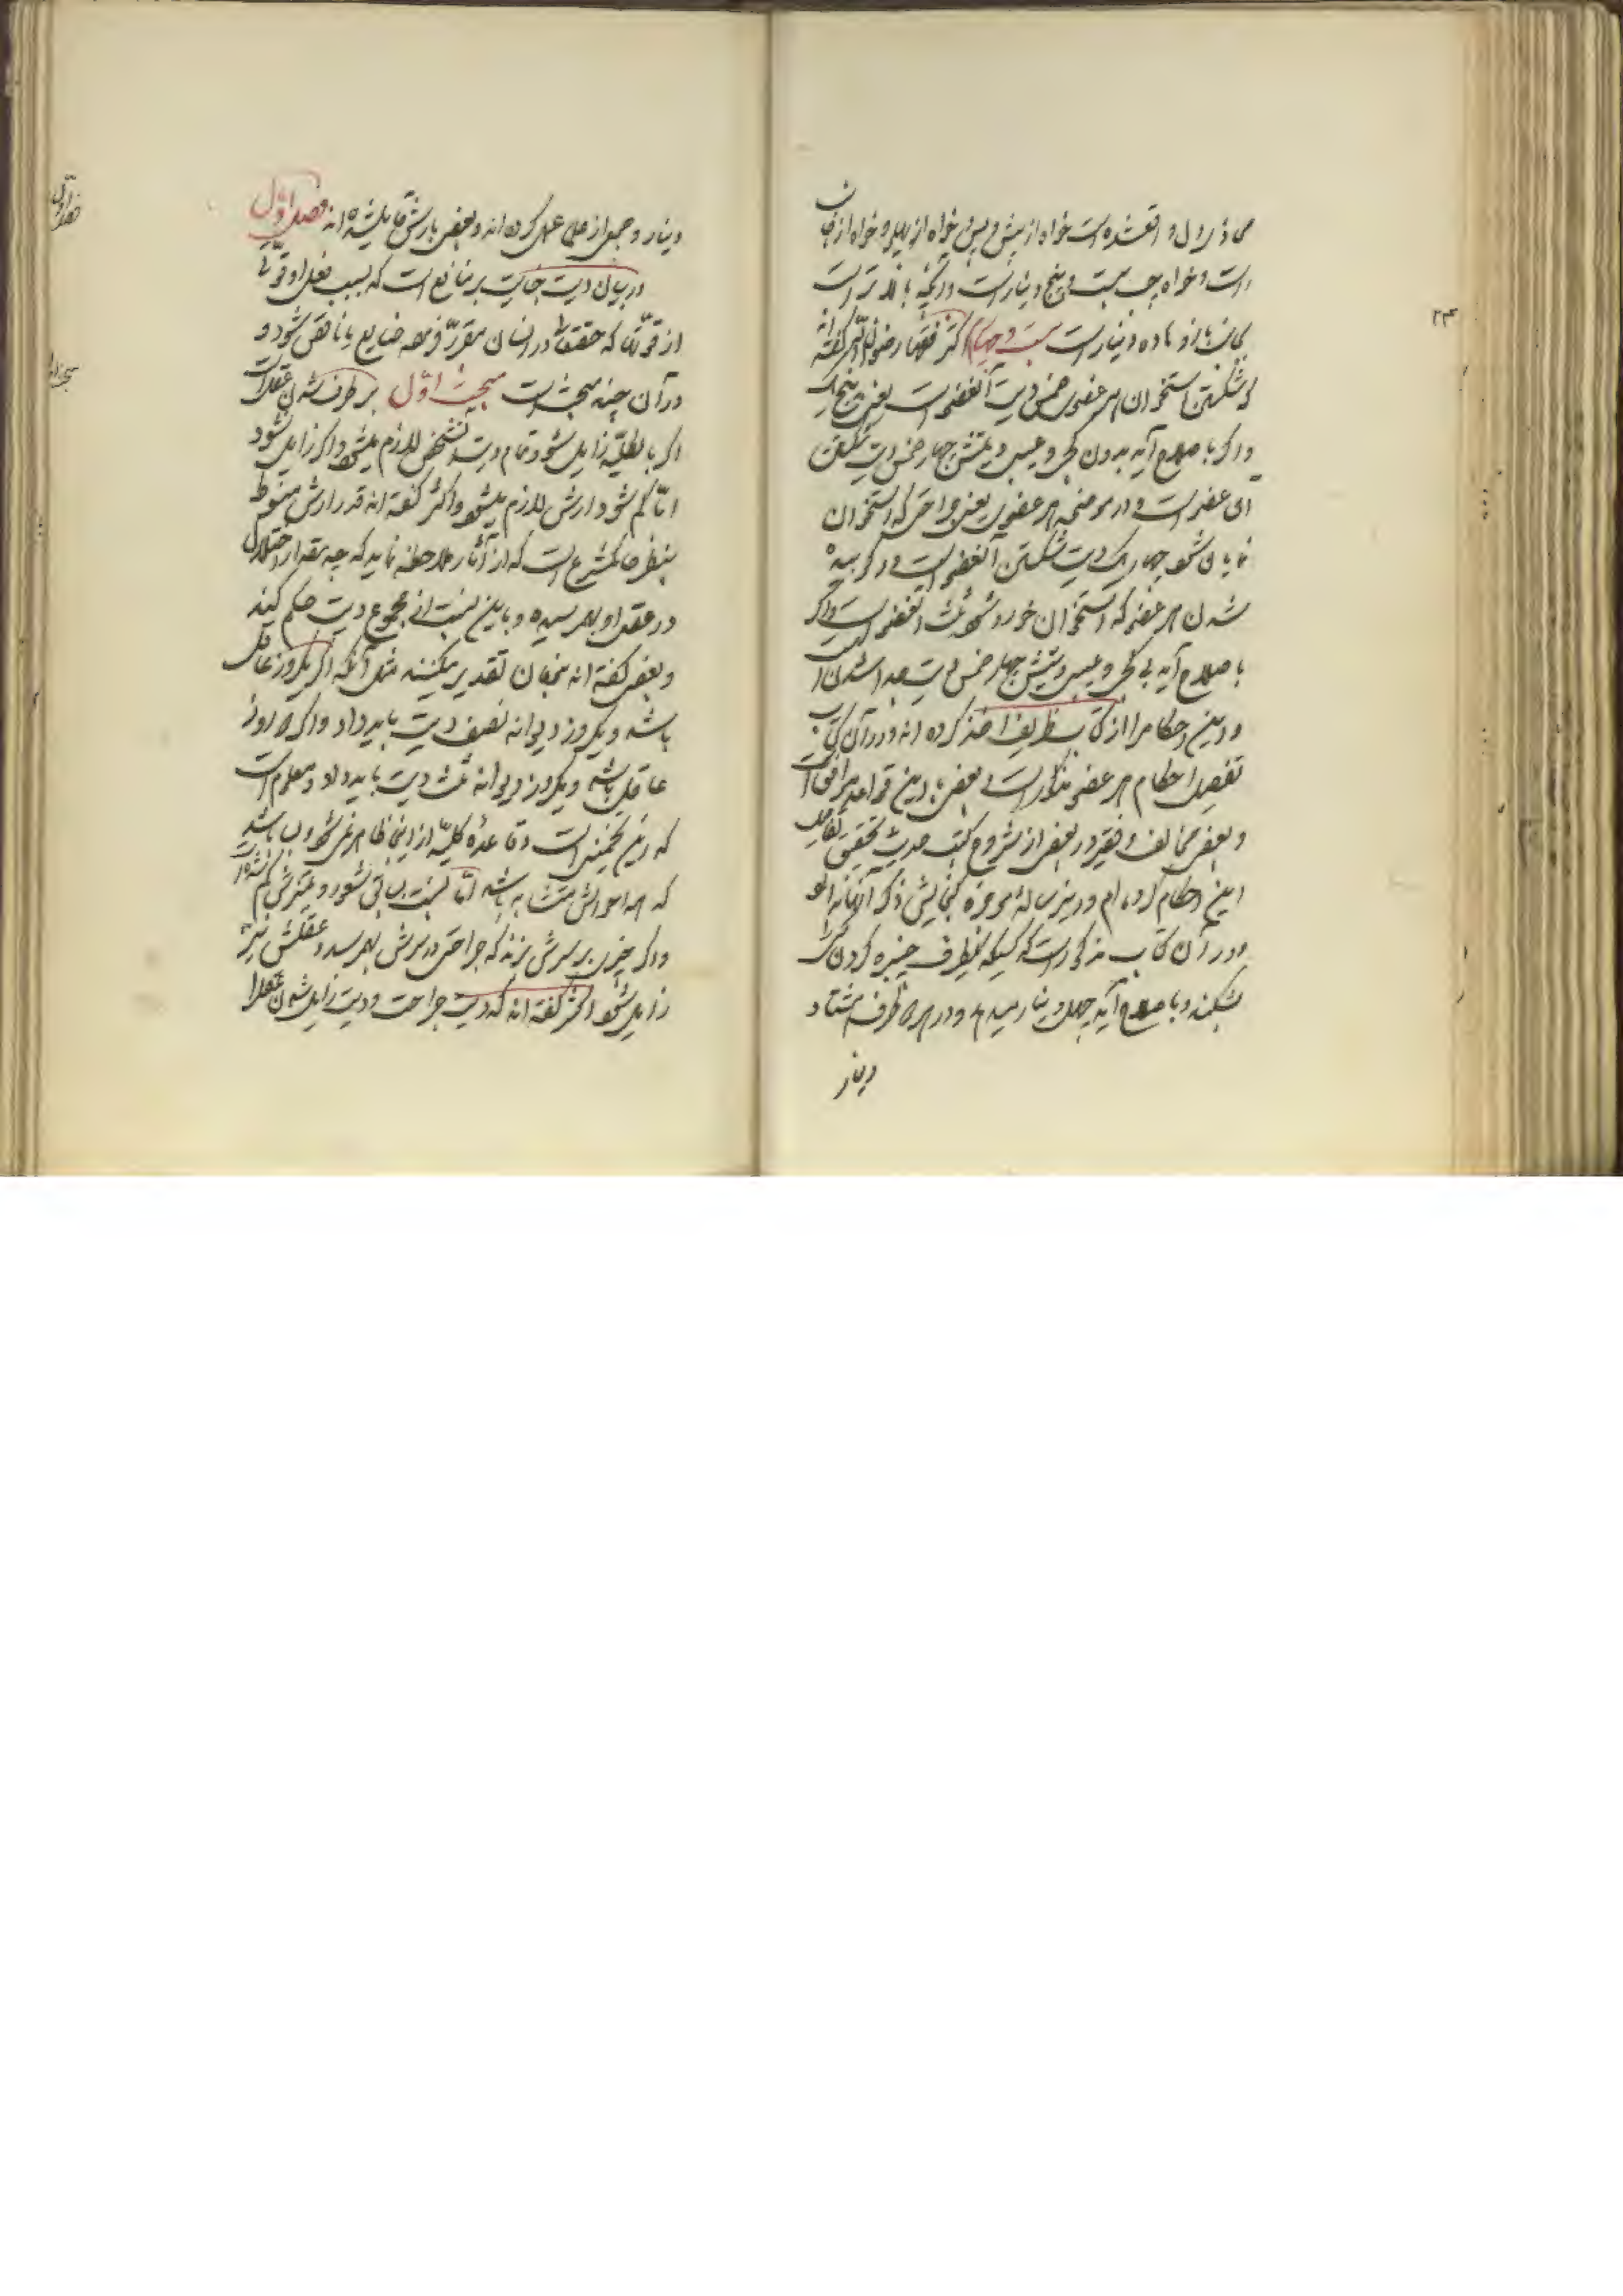 محاذی دل واقع شده است خواه از پیش و پس و خواه از پهلو و خواه از جانب
راست و خواه چپ بیست و پنج دینار است و در آنچه بالاتر است
بجانب بازو ده دینار است بیست و چهارم اکثر فقها رضوان الله گفته‌اند
که شکستن استخوان هر عضوی خمس دیت آنعضو است یعنی پنج یک
و اگر باصلاح آید بدون کجی و عیب دیتش چهار خمس دیت شکستن
آن عضو است و در موضحه هر عضوی یعنی جراحتی که استخوان
نمایان شود چهار یک دیت شکستن آنعضو است و در کوبیده
شدن هر عضو که استخوان خورد شود ثلث دیت آنعضو است و اگر
باصلاح آید بی کجی و عیب دیتش چهار خمس دیت
و این احکام را از کتاب ظریف اخذ کرده‌اند و در آن کتاب
تفصیل احکام هر عضو مذکور است بعضی با این قواعد موافق است
و بعضی مخالف و فقیر در بعضی از شروح کتب حدیث تحقیق تفاصیل
این احکام کرده‌ام و درین رساله موجزه گنجایش ذکر آنها نبود
و در آن کتاب مذکور است که کسیکه یکطرف چنبره گردن کسی را
بشکند و باصلاح آید چهل دینار میدهد و در هر دو طرف هشتاد
دینار
دینار و جمعی از علما عمل کرده‌اند و بعضی بارش قایل شده‌اند فصل اول
در بیان دیت جنایت بر منافع است که بسبب فعل او قوتی
از قوتها که حقتعالی در انسان مقرر فرموده ضایع یا ناقص شود و
در آن چند مبحث است مبحث اول بر طرف شدن عقل است
اگر بالکلیه زایل شود تمام دیت آنشخص لازم میشود و اگر زایل نشود
اما کم شود ارش لازم میشود و اکثر گفته‌اند قدر ارش منوط
بنظر حاکم شرع است که از آثار ملاحظه نماید که چه مقدار اختلال
در عقل او بهم رسیده و باین نسبت از مجموع دیت حکم کند
و بعضی گفته‌اند بزمان تقدیر میکنند مثل آنکه اگر یکروز عاقل
باشد و یکروز دیوانه نصف دیت باید داد و اگر دو روز
عاقل باشد و یکروز دیوانه ثلث دیت باید داد و معلوم است
که این تخمینی است و قاعدهٔ کلیه از اینها ظاهر نمیشود و بسا باشد
که همه احوالش متشابه باشد اما نسبت بسابق شعور و تمیزش کم شده باشد
و اگر چیزی بر سرش بزند که جراحتی در سرش بهم رسد و عقلش نیز
زایل شود اکثر گفته‌اند که دیت جراحت و دیت زایل شدن عقل را
فصل اول
مبحث اول
۲۴